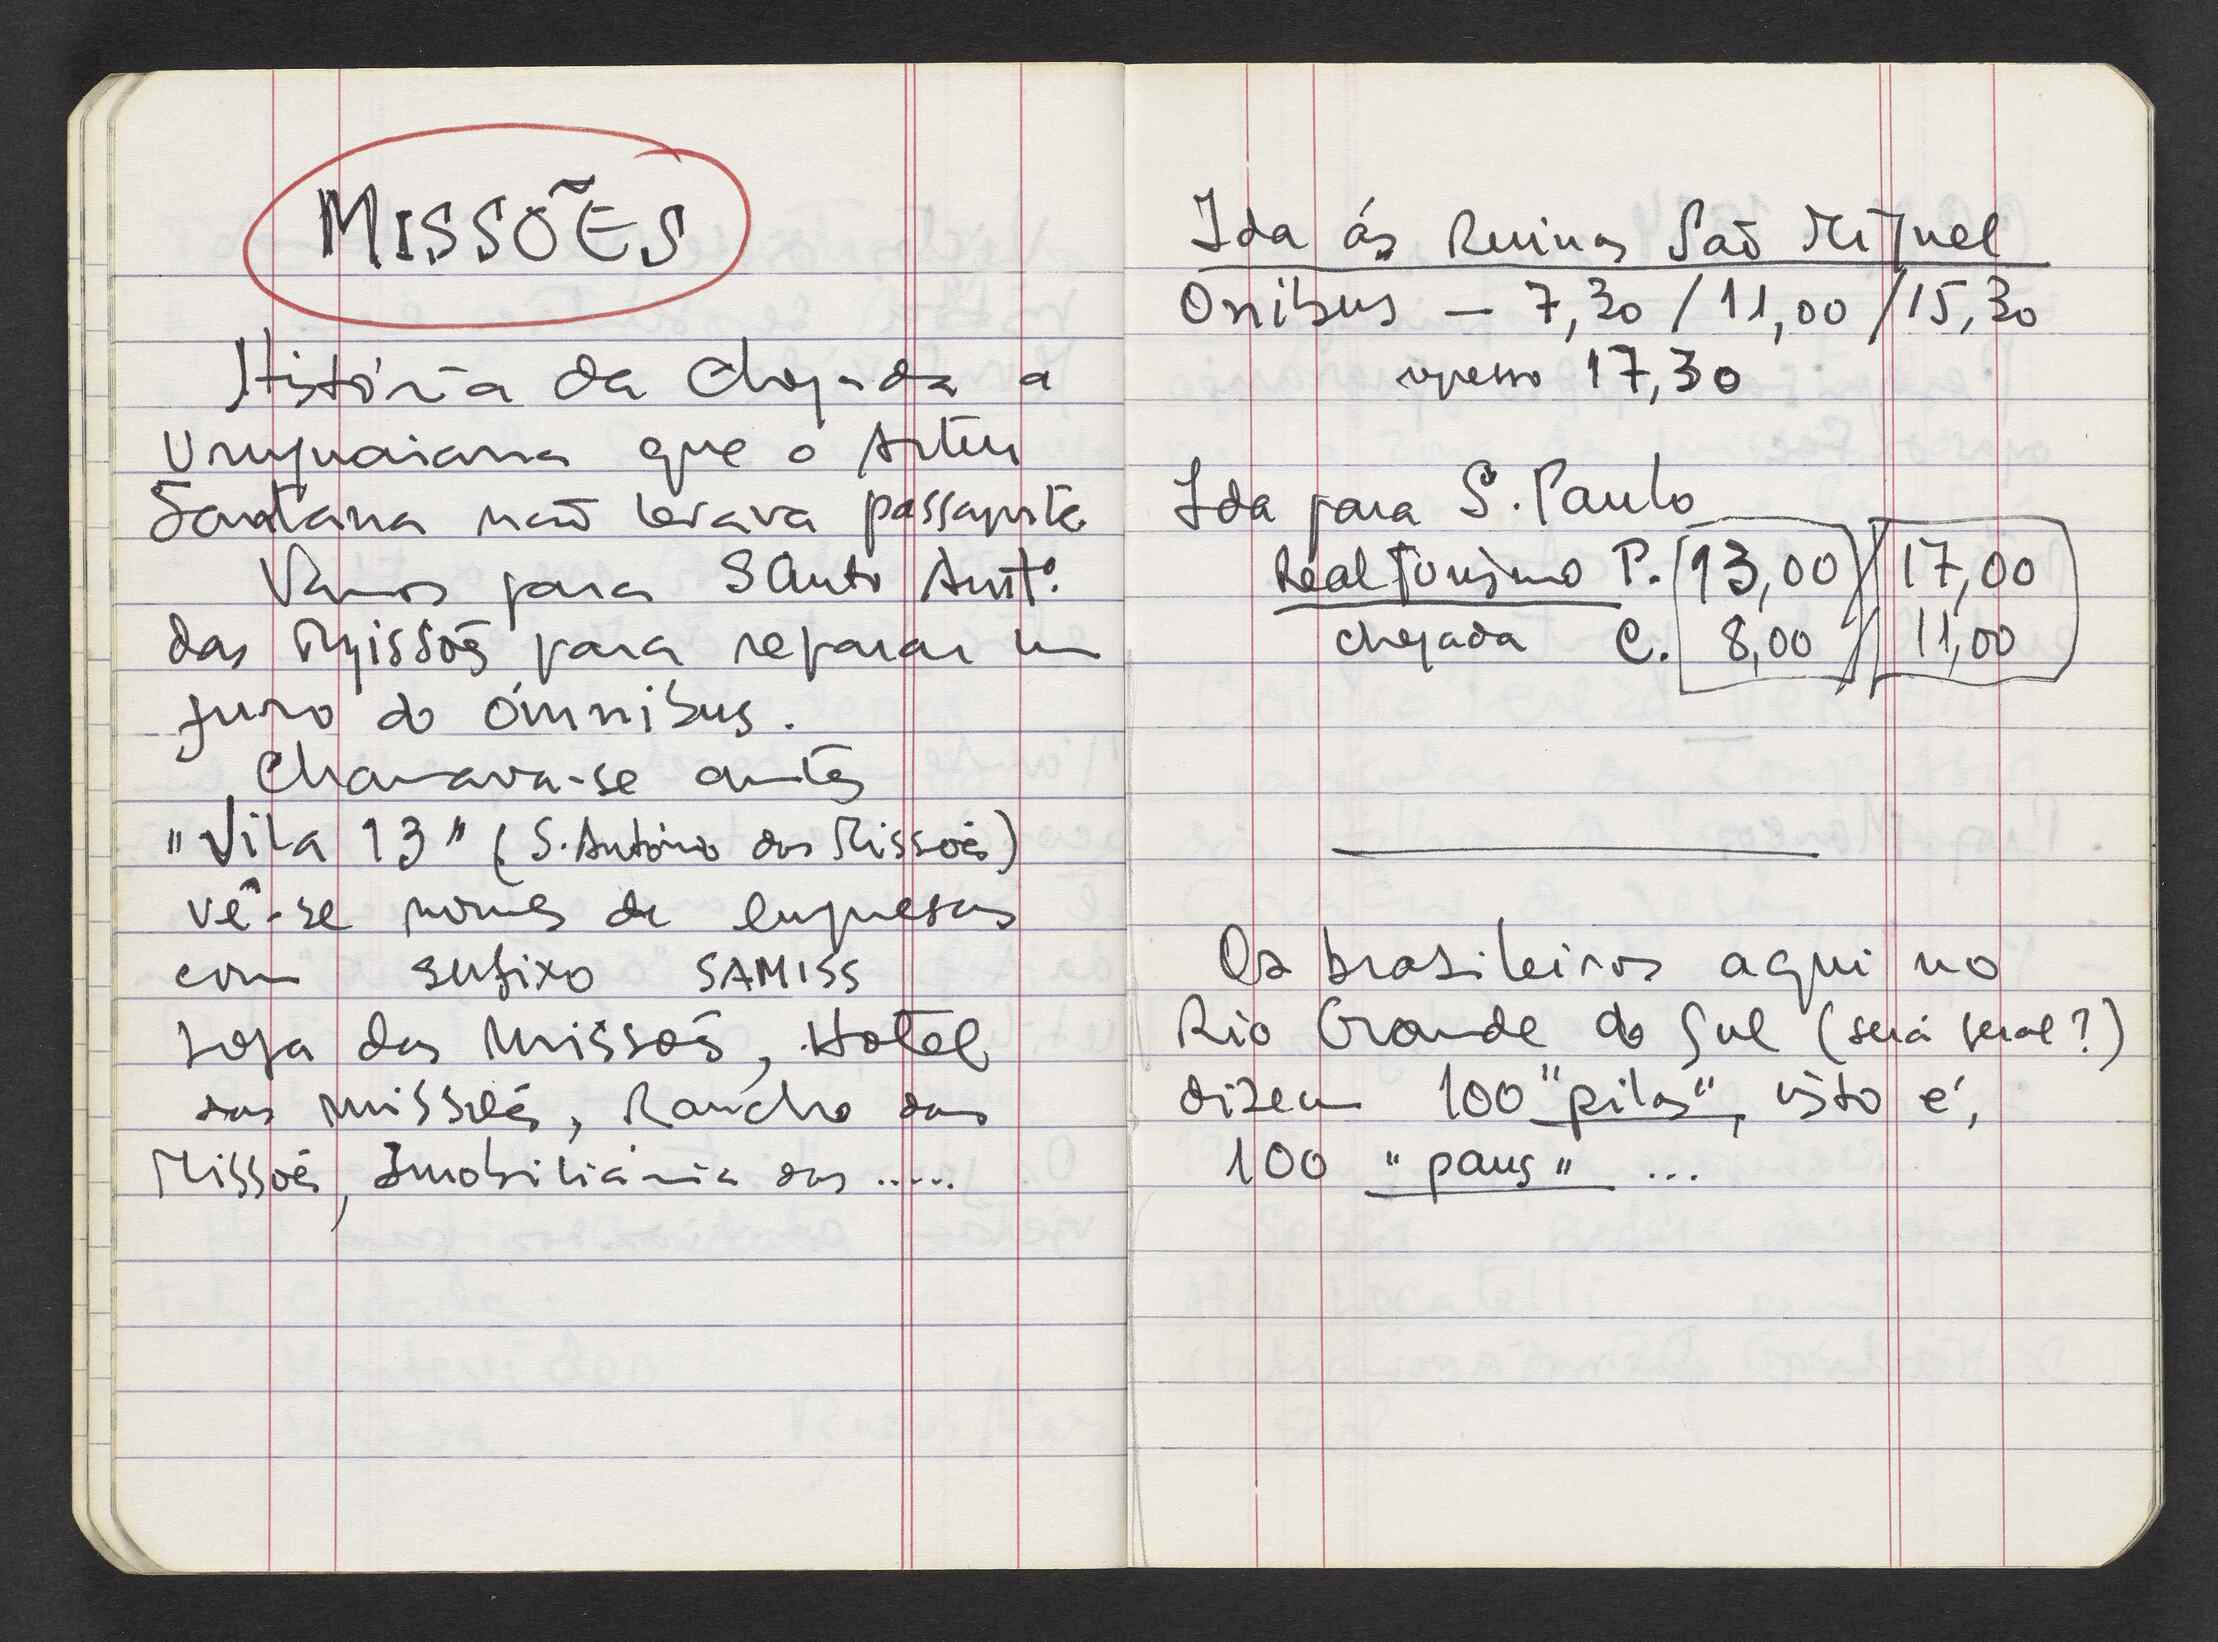 MISSÕES
História da chegada a
Uruguaiana que o Artur
Santana não levava passaporte
Vamos para Santo Antº.
das Missões para reparar um
furo do ómnibus.
Chamava-se antes
"Vila 13" (S. António das Missões)
vê-se nomes de empresas
com sufixo SAMISS
Loja das Missões, Hotel
das Missões, Rancho das
Missões, Imobiliária das .....
Ida ás Ruinas São Miguel
Onibus — 7,30 / 11,00 / 15,30
regresso 17,30
Ida para S. Paulo
Real Turismo P. 13,00 17,00
chegada C. 8,00 11,00
Os brasileiros aqui no
Rio Grande do Sul (será geral?)
dizem 100 "pilas", isto é,
100 "paus" ...